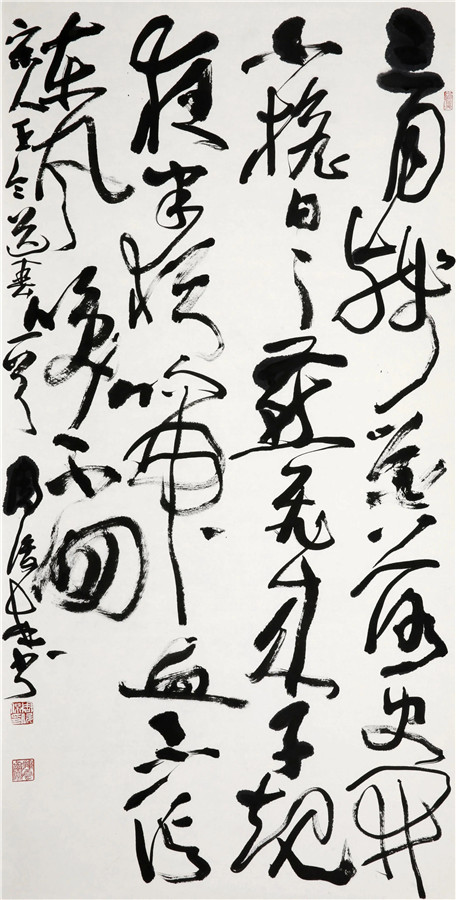 三月殘花落更開
小檐日々燕飛來子規
夜半猶啼血不信
東風喚不回
宋人王令送春一首 周俊杰書